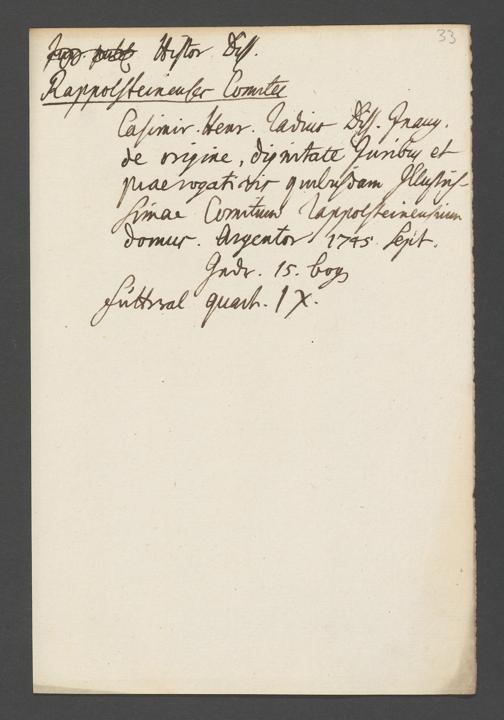 33
Histor Diss.
Rappolsteinenses Comites
Casimir. Henr. Radius Diss. Inaug.
de origine, dignitate Juribus et
praerogativis quibusdam Illustris-
simae Comitum Rappolsteinensium
domus. Argentor 1745. Sept.
15. bog
quart. 1 X.